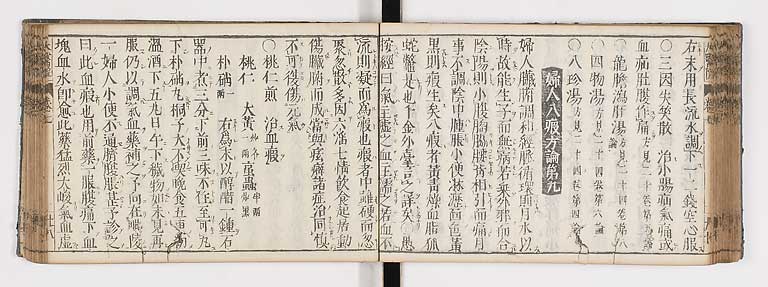 右末用長流水調下一二錢空心服
○三因失笑散 治小腸疝氣痛或
血痛肚腹作痛 方見二十四卷第二論
○龍膽瀉肝湯 方見二十四卷第八論
○四物湯 方見二十四卷第六論
○八珍湯 方見二十四卷第四論
婦人八瘕方論第九
婦人臟腑調和經脈循環則月水以
時故能生子而血病若乘外邪而合
陰陽則小腹胸脇腰背相引而痛月
事不調陰中腫脹小便淋瀝面色黃
黑則瘕生矣八瘕者黃青燥血脂狐
蛇鱉是也千金外臺言之詳矣○愚
按經曰氣主噓之血主濡之若血不
流則凝而為瘕也瘕者中雖硬而忽
聚忽散多因六淫七情飲食起居動
傷臟腑而成當與痃癖諸症治同慎
不可復傷元氣
○桃仁煎 治血瘕
桃仁 大黃 各一兩 䖟蟲 半兩炒黑
朴硝 一兩 右為末以醇醋一鍾石
器中煮三分下前三味不住手可丸
下朴硝丸桐子大不喫晚食五更初
溫酒下五丸日午下穢物如未見再
服仍以調氣血藥補之予向在毗陵
一婦人小便不通臍腹脹甚予診之
曰此血瘕也用前藥一服腹痛下血
塊血水即愈此藥猛烈大峻氣血虛